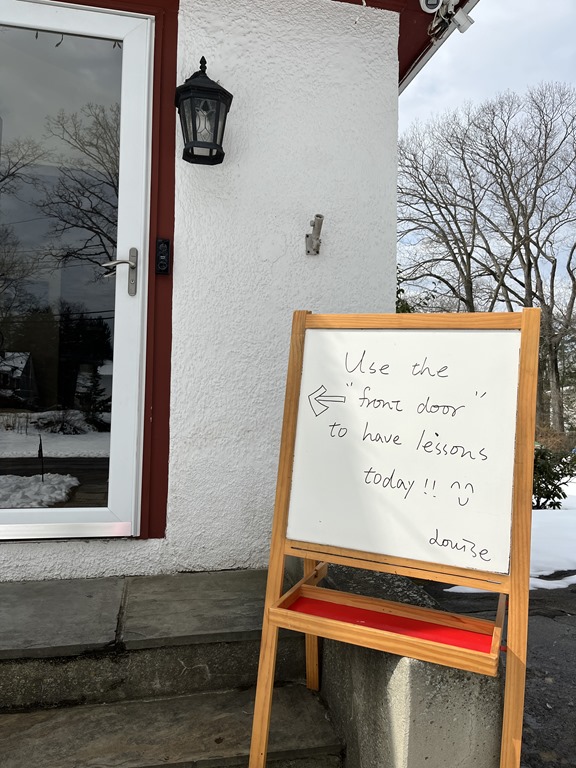 Use the
"front door"
to have lessons
today!!
Louise